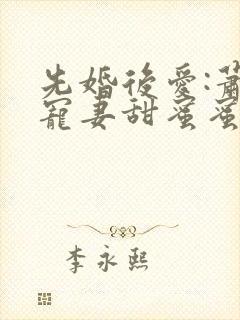 先婚後愛:蕭
寵妻甜蜜蜜
李永熙